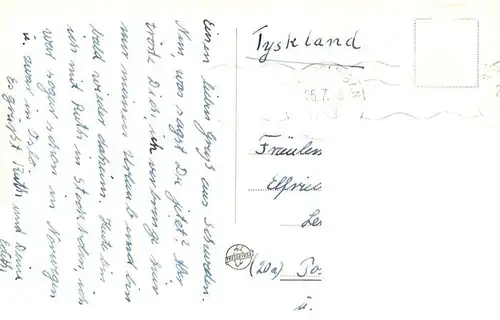 Einen lieben Gruß aus Schweden.
Nun, was sagst Du jetzt? Aber
tröste Dich, ich verbringe hier
nur meinen Urlaub und bin
bald wieder daheim. Heute bin
ich mit Ruth in Stockholm, ich
war sogar schon in Norwegen
u. zwar in Oslo.
Es grüßt Ruth und Deine
Edith
Tyskland
Fräulein
Elfried
(20a)
u.